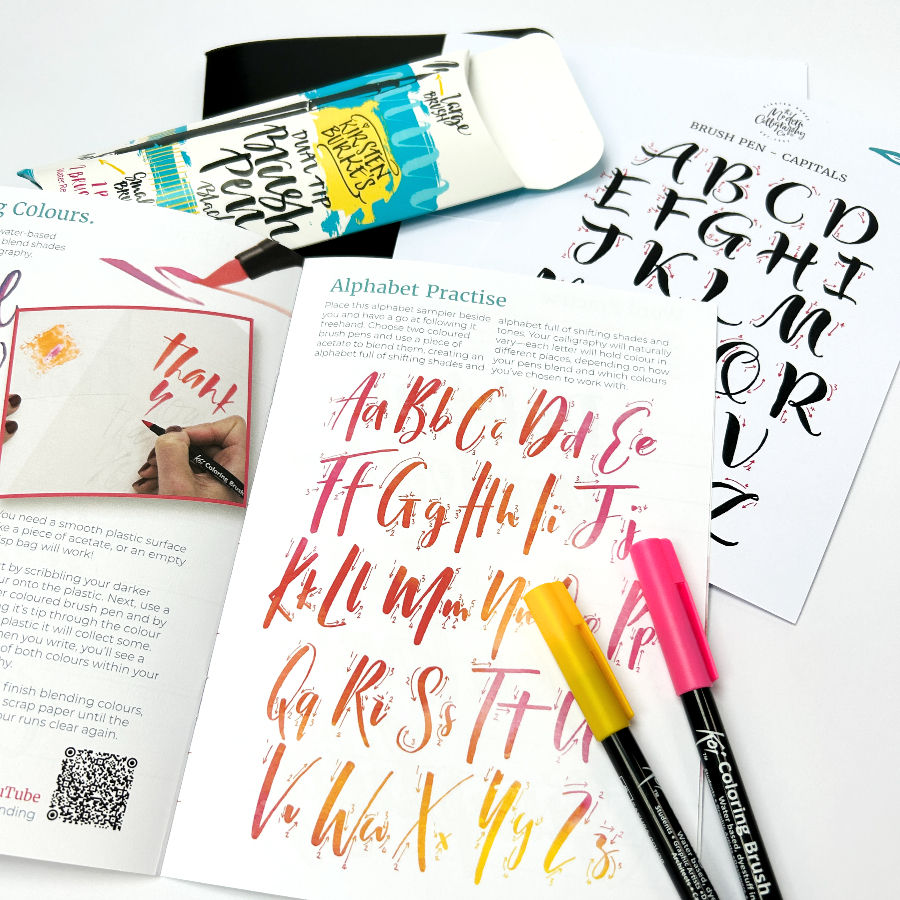 Large
BRUSH
KIRSTEN
BURKE'S
DUAL TIP
Brush
Pen
Black
The
Modern
Calligraphy
Co
BRUSH PEN ~ CAPITALS
A B C D
E F G H I
J K L M
Q R
V
Z
Colours.
water-based
blend shades
thank
y
Koi Coloring Brush
You need a smooth plastic surface
a piece of acetate, or an empty
bag will work!
by scribbling your darker
onto the plastic. Next, use a
coloured brush pen and by
it's tip through the colour
plastic it will collect some.
when you write, you'll see a
of both colours within your
finish blending colours,
scrap paper until the
runs clear again.
Alphabet Practise
Place this alphabet sampler beside
you and have a go at following it
freehand. Choose two coloured
brush pens and use a piece of
acetate to blend them, creating an
alphabet full of shifting shades and
alphabet full of shifting shades and
tones. Your calligraphy will naturally
vary—each letter will hold colour in
different places, depending on how
your pens blend and which colours
you've chosen to work with.
Aa Bb Cc Dd Ee
Ff Gg Hh Ii Jj
Kk Ll Mm Nn O Pp
Qq Rr Ss Tt U
Vv Ww Xx Yy Zz
Koi Coloring Brush
Water based, dyestuff